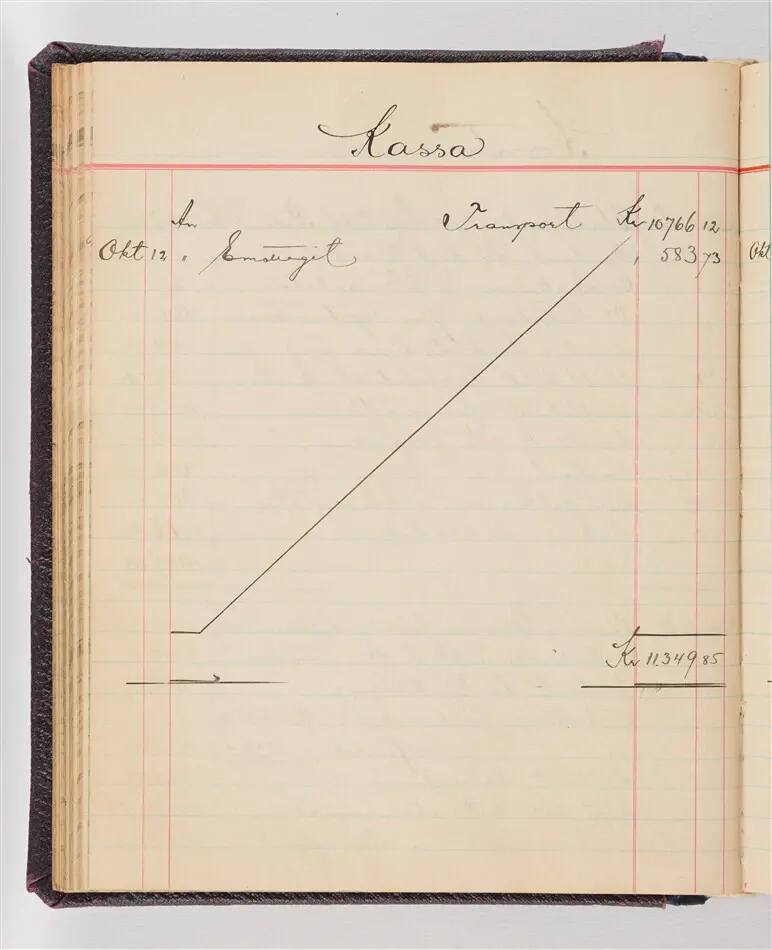 Kassa
An Transport Kr 10766 12
Okt 12 " Emottagit " 583 73
Okt
Kr 11.349 85